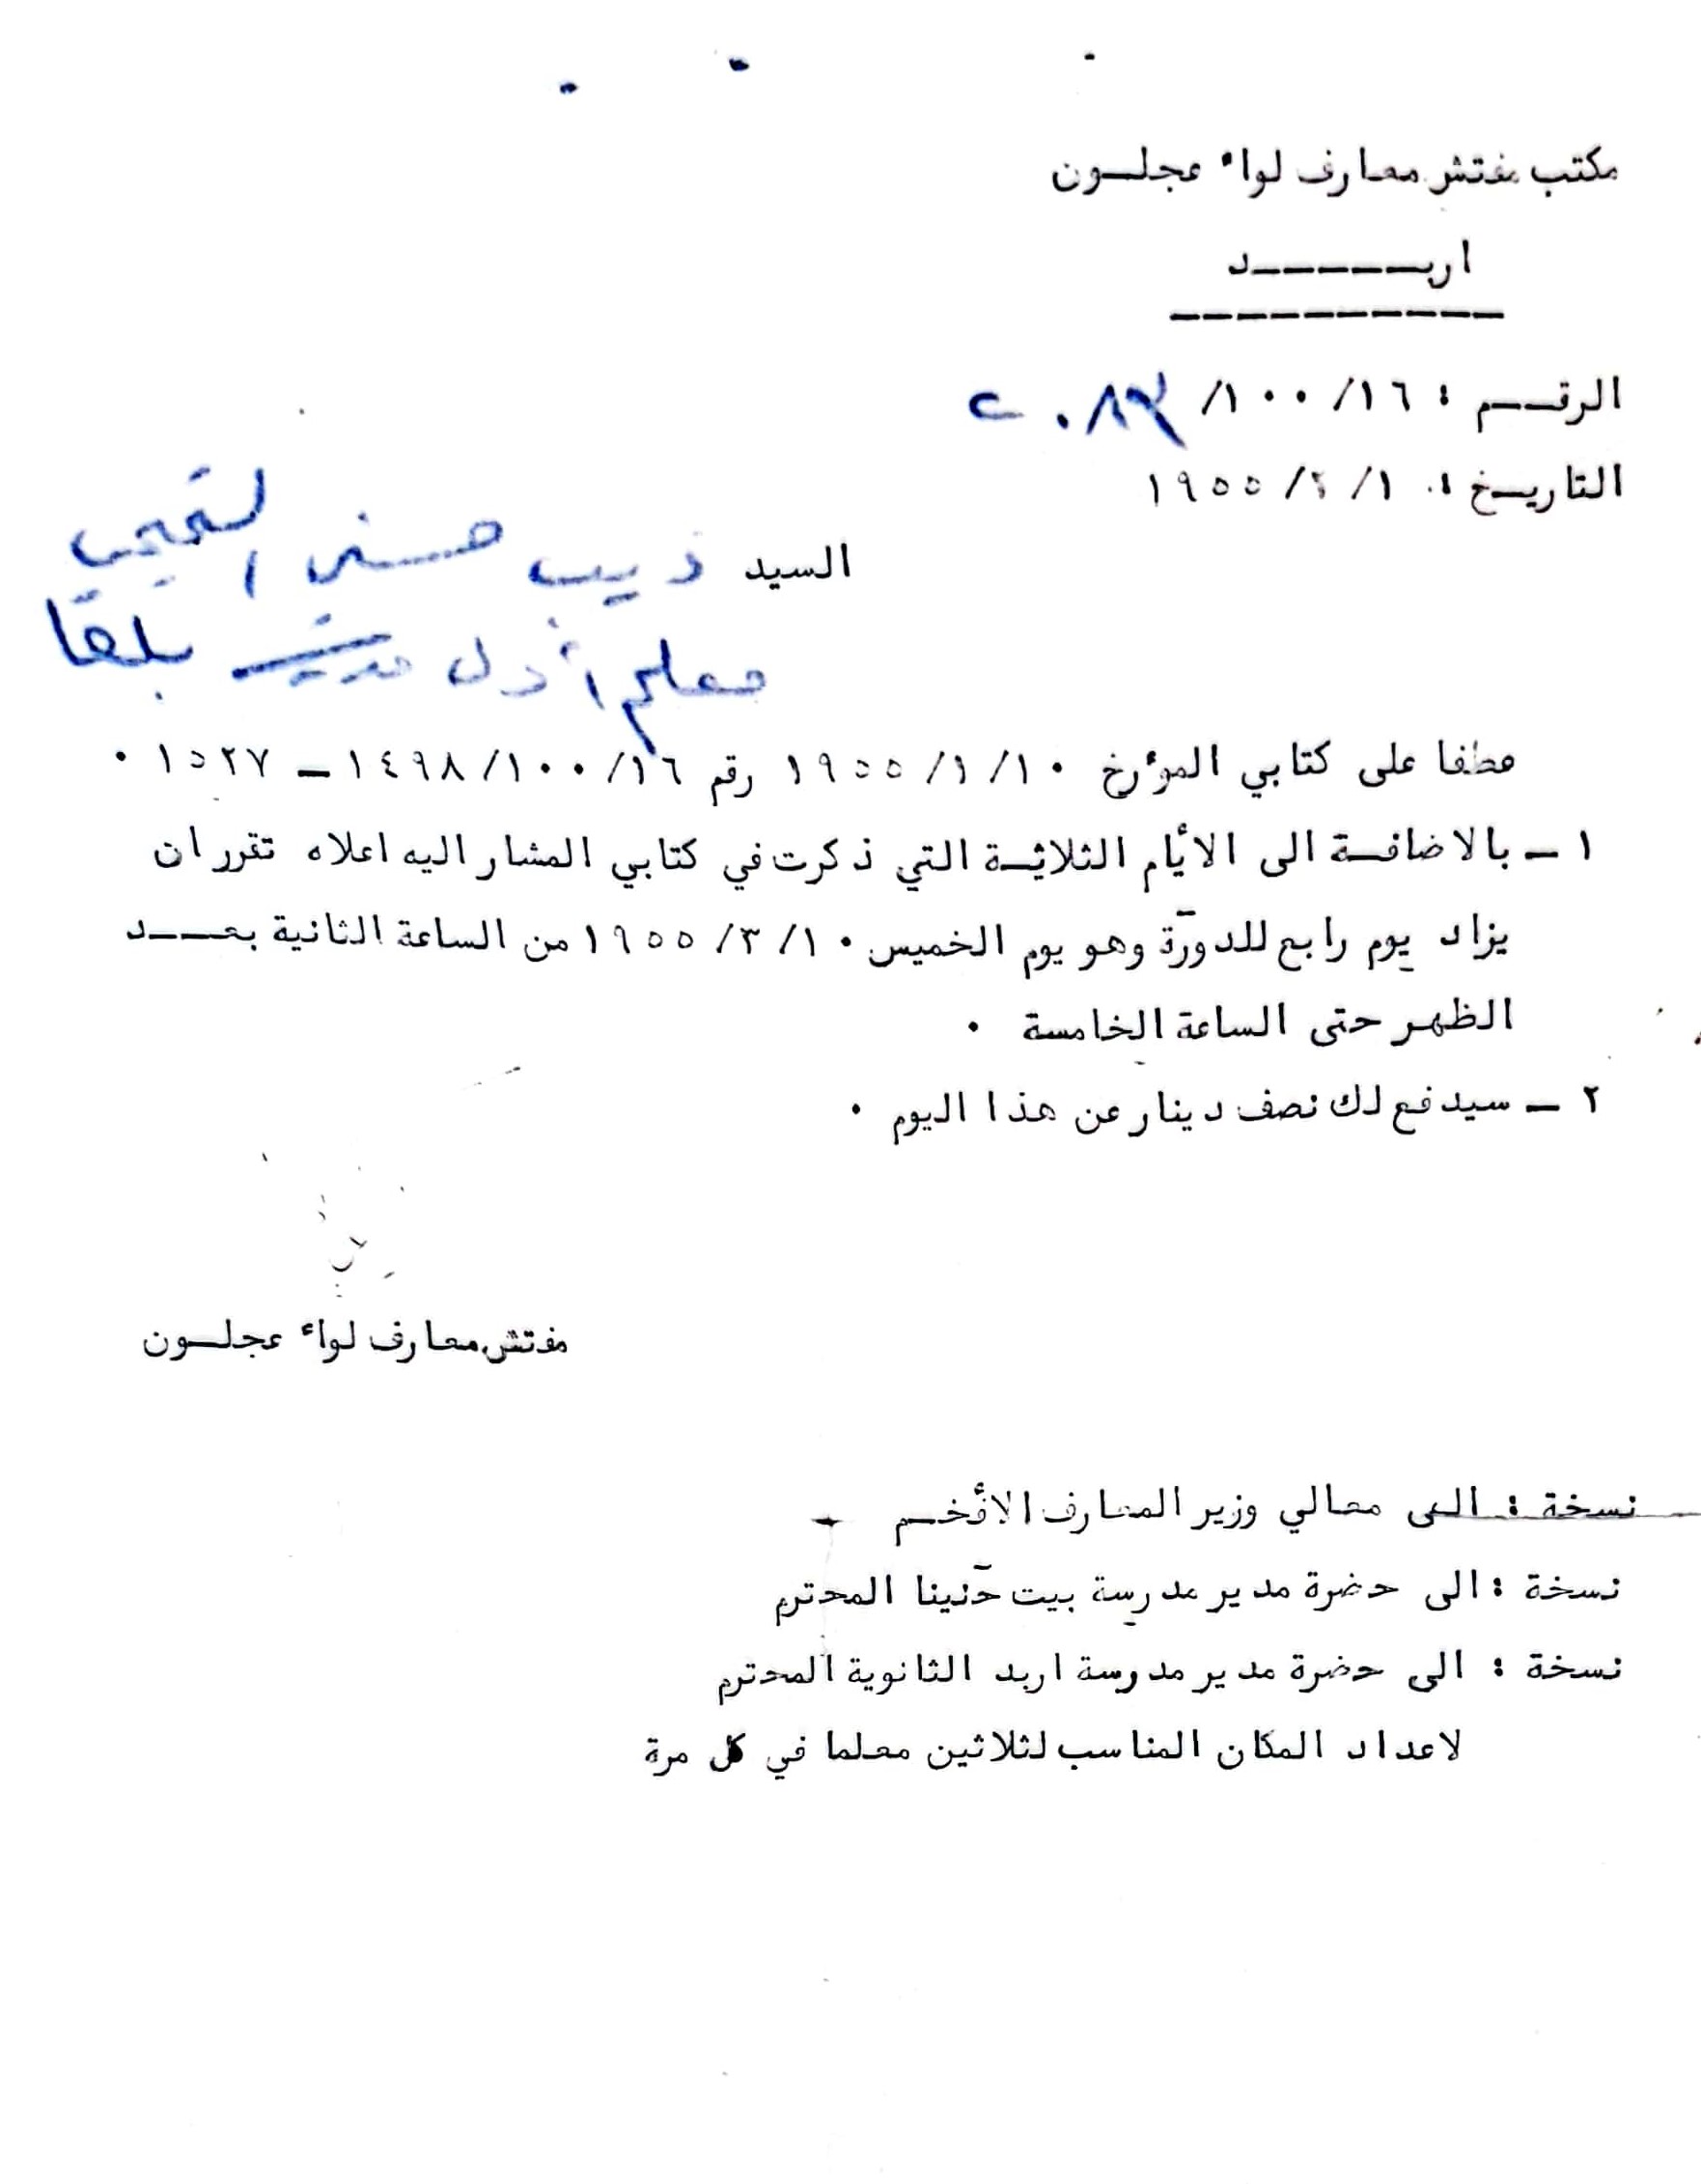 مكتب مفتش معارف لواء عجلـــون
اربـــــــد
الرقـــم : ١٦/١٠٠/٢٠٨٣
التاريـخ : ١/٢/١٩٥٥
السيد ذيب حسني
معلم أول مدرسة بلقا
عطفا على كتابي المؤرخ ١٠/١/١٩٥٥ رقم ١٦/١٠٠/١٤٩٨ – ١٥٢٧ ٠
١ – بالاضافـة الى الأيام الثلاثـة التي ذكرت في كتابي المشار اليه اعلاه تقرر ان
يزاد يوم رابع للدورة وهو يوم الخميس ١٠/٣/١٩٥٥ من الساعة الثانية بعـــد
الظهر حتى الساعة الخامسة ٠
٢ – سيدفع لك نصف دينار عن هذا اليوم ٠
مفتش معارف لواء عجلـــون
نسخة : الى معالي وزير المعارف الأفخـم
نسخة : الى حضرة مدير مدرسة بيت حنينا المحترم
نسخة : الى حضرة مدير مدرسة اربد الثانوية المحترم
لاعداد المكان المناسب لثلاثين معلما في كل مرة